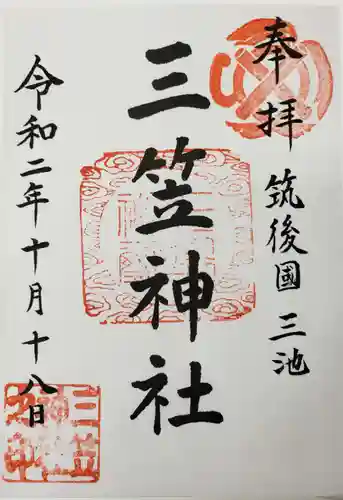 奉拝
筑後國 三池
三笠神社
令和二年十月十八日